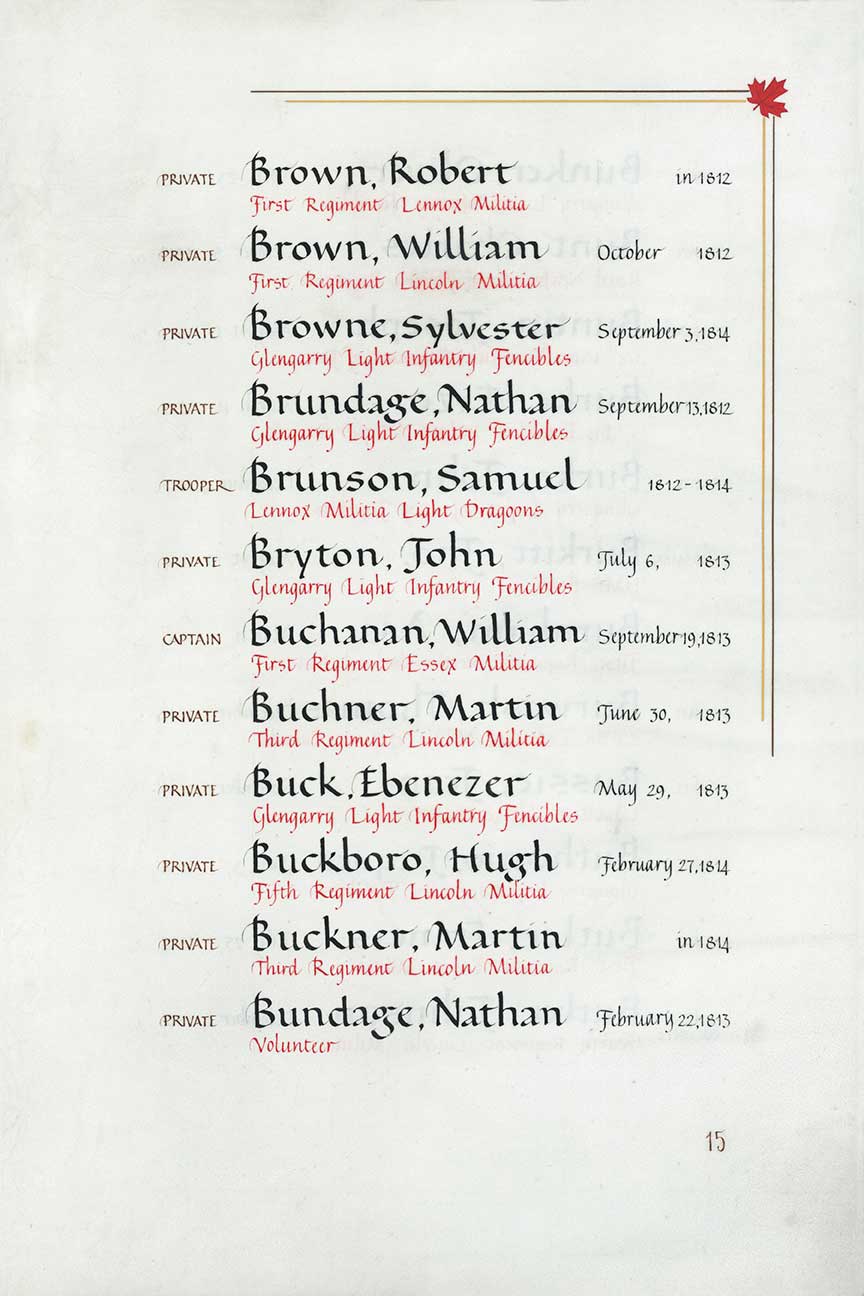 PRIVATE Brown, Robert in 1812
First Regiment Lennox Militia
PRIVATE Brown, William October 1812
First Regiment Lincoln Militia
PRIVATE Browne, Sylvester September 3, 1814
Glengarry Light Infantry Fencibles
PRIVATE Brundage, Nathan September 13, 1812
Glengarry Light Infantry Fencibles
TROOPER Brunson, Samuel 1812 - 1814
Lennox Militia Light Dragoons
PRIVATE Bryton, John July 6, 1813
Glengarry Light Infantry Fencibles
CAPTAIN Buchanan, William September 19, 1813
First Regiment Essex Militia
PRIVATE Buchner, Martin June 30, 1813
Third Regiment Lincoln Militia
PRIVATE Buck, Ebenezer May 29, 1813
Glengarry Light Infantry Fencibles
PRIVATE Buckboro, Hugh February 27, 1814
Fifth Regiment Lincoln Militia
PRIVATE Buckner, Martin in 1814
Third Regiment Lincoln Militia
PRIVATE Bundage, Nathan February 22, 1813
Volunteer
15